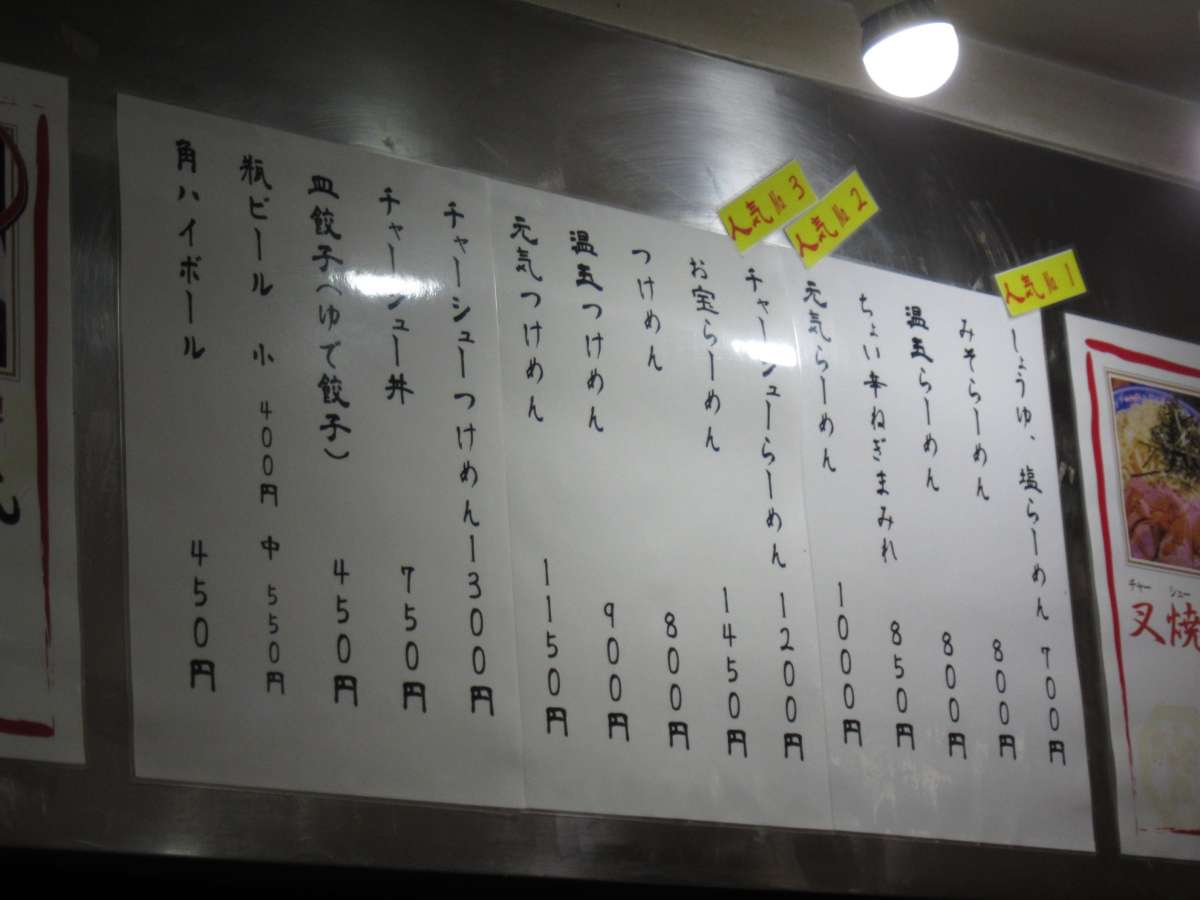 人気№1
しょうゆ、塩らーめん 700円
みそらーめん 800円
温玉らーめん 800円
ちょい辛ねぎまみれ 850円
人気№2
元気らーめん 1000円
人気№3
チャーシューらーめん 1200円
お宝らーめん 1450円
つけめん 800円
温玉つけめん 900円
元気つけめん 1150円
チャーシューつけめん 1300円
チャーシュー丼 750円
皿餃子(ゆで餃子) 450円
瓶ビール 小 400円 中 550円
角ハイボール 450円
チャー シュー
叉焼